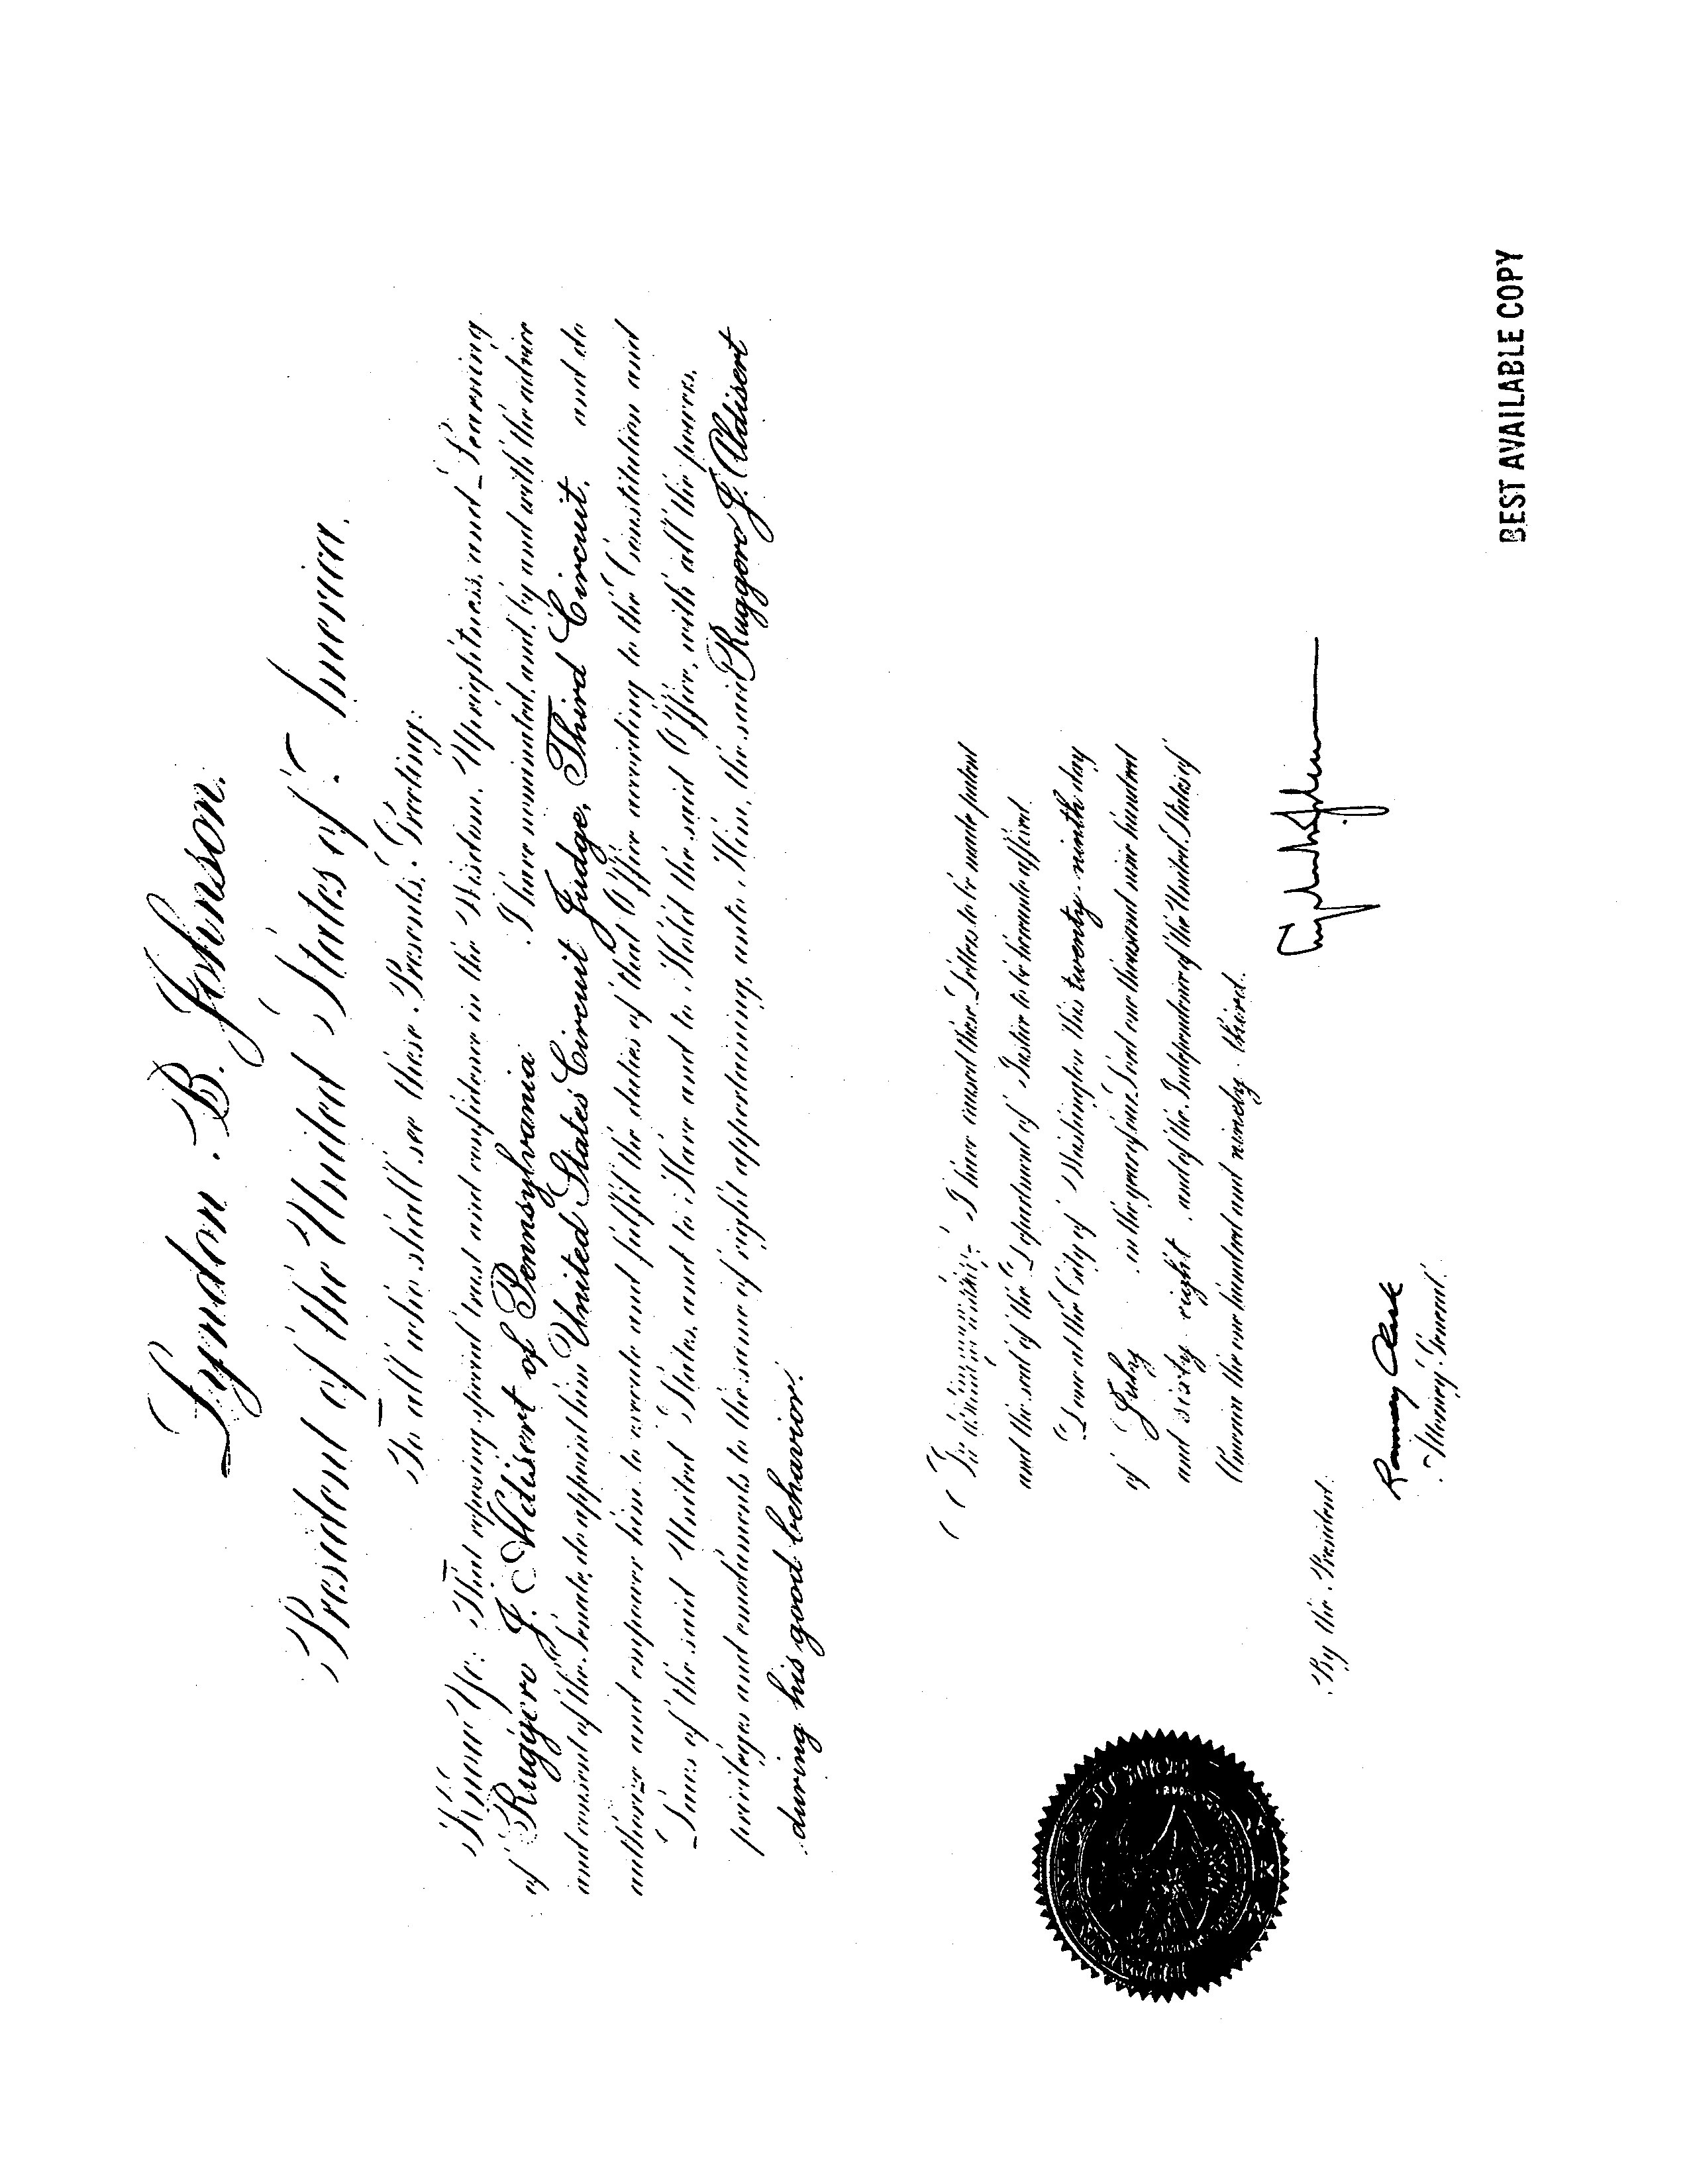 Lyndon B. Johnson.
President of the United States of America.
To all who shall see these Presents, Greeting:
Know Ye: That reposing special trust and confidence in the Wisdom, Uprightness, and Learning
of Ruggero J. Aldisert of Pennsylvania I have nominated, and, by and with the advice
and consent of the Senate, do appoint him United States Circuit Judge, Third Circuit, and do
authorize and empower him to execute and fulfil the duties of that Office according to the Constitution and
Laws of the said United States, and to Have and to Hold the said Office, with all the powers,
privileges and emoluments to the same of right appertaining, unto Him, the said Ruggero J. Aldisert
during his good behavior.
In testimony whereof, I have caused these Letters to be made patent
and the seal of the Department of Justice to be hereunto affixed.
Done at the City of Washington this twenty-ninth day
of July in the year of our Lord one thousand nine hundred
and sixty-eight, and of the Independence of the United States of
America the one hundred and ninety-third.
Lyndon B. Johnson
By the President:
Ramsey Clark
Attorney General.
JUSTICE
BEST AVAILABLE COPY